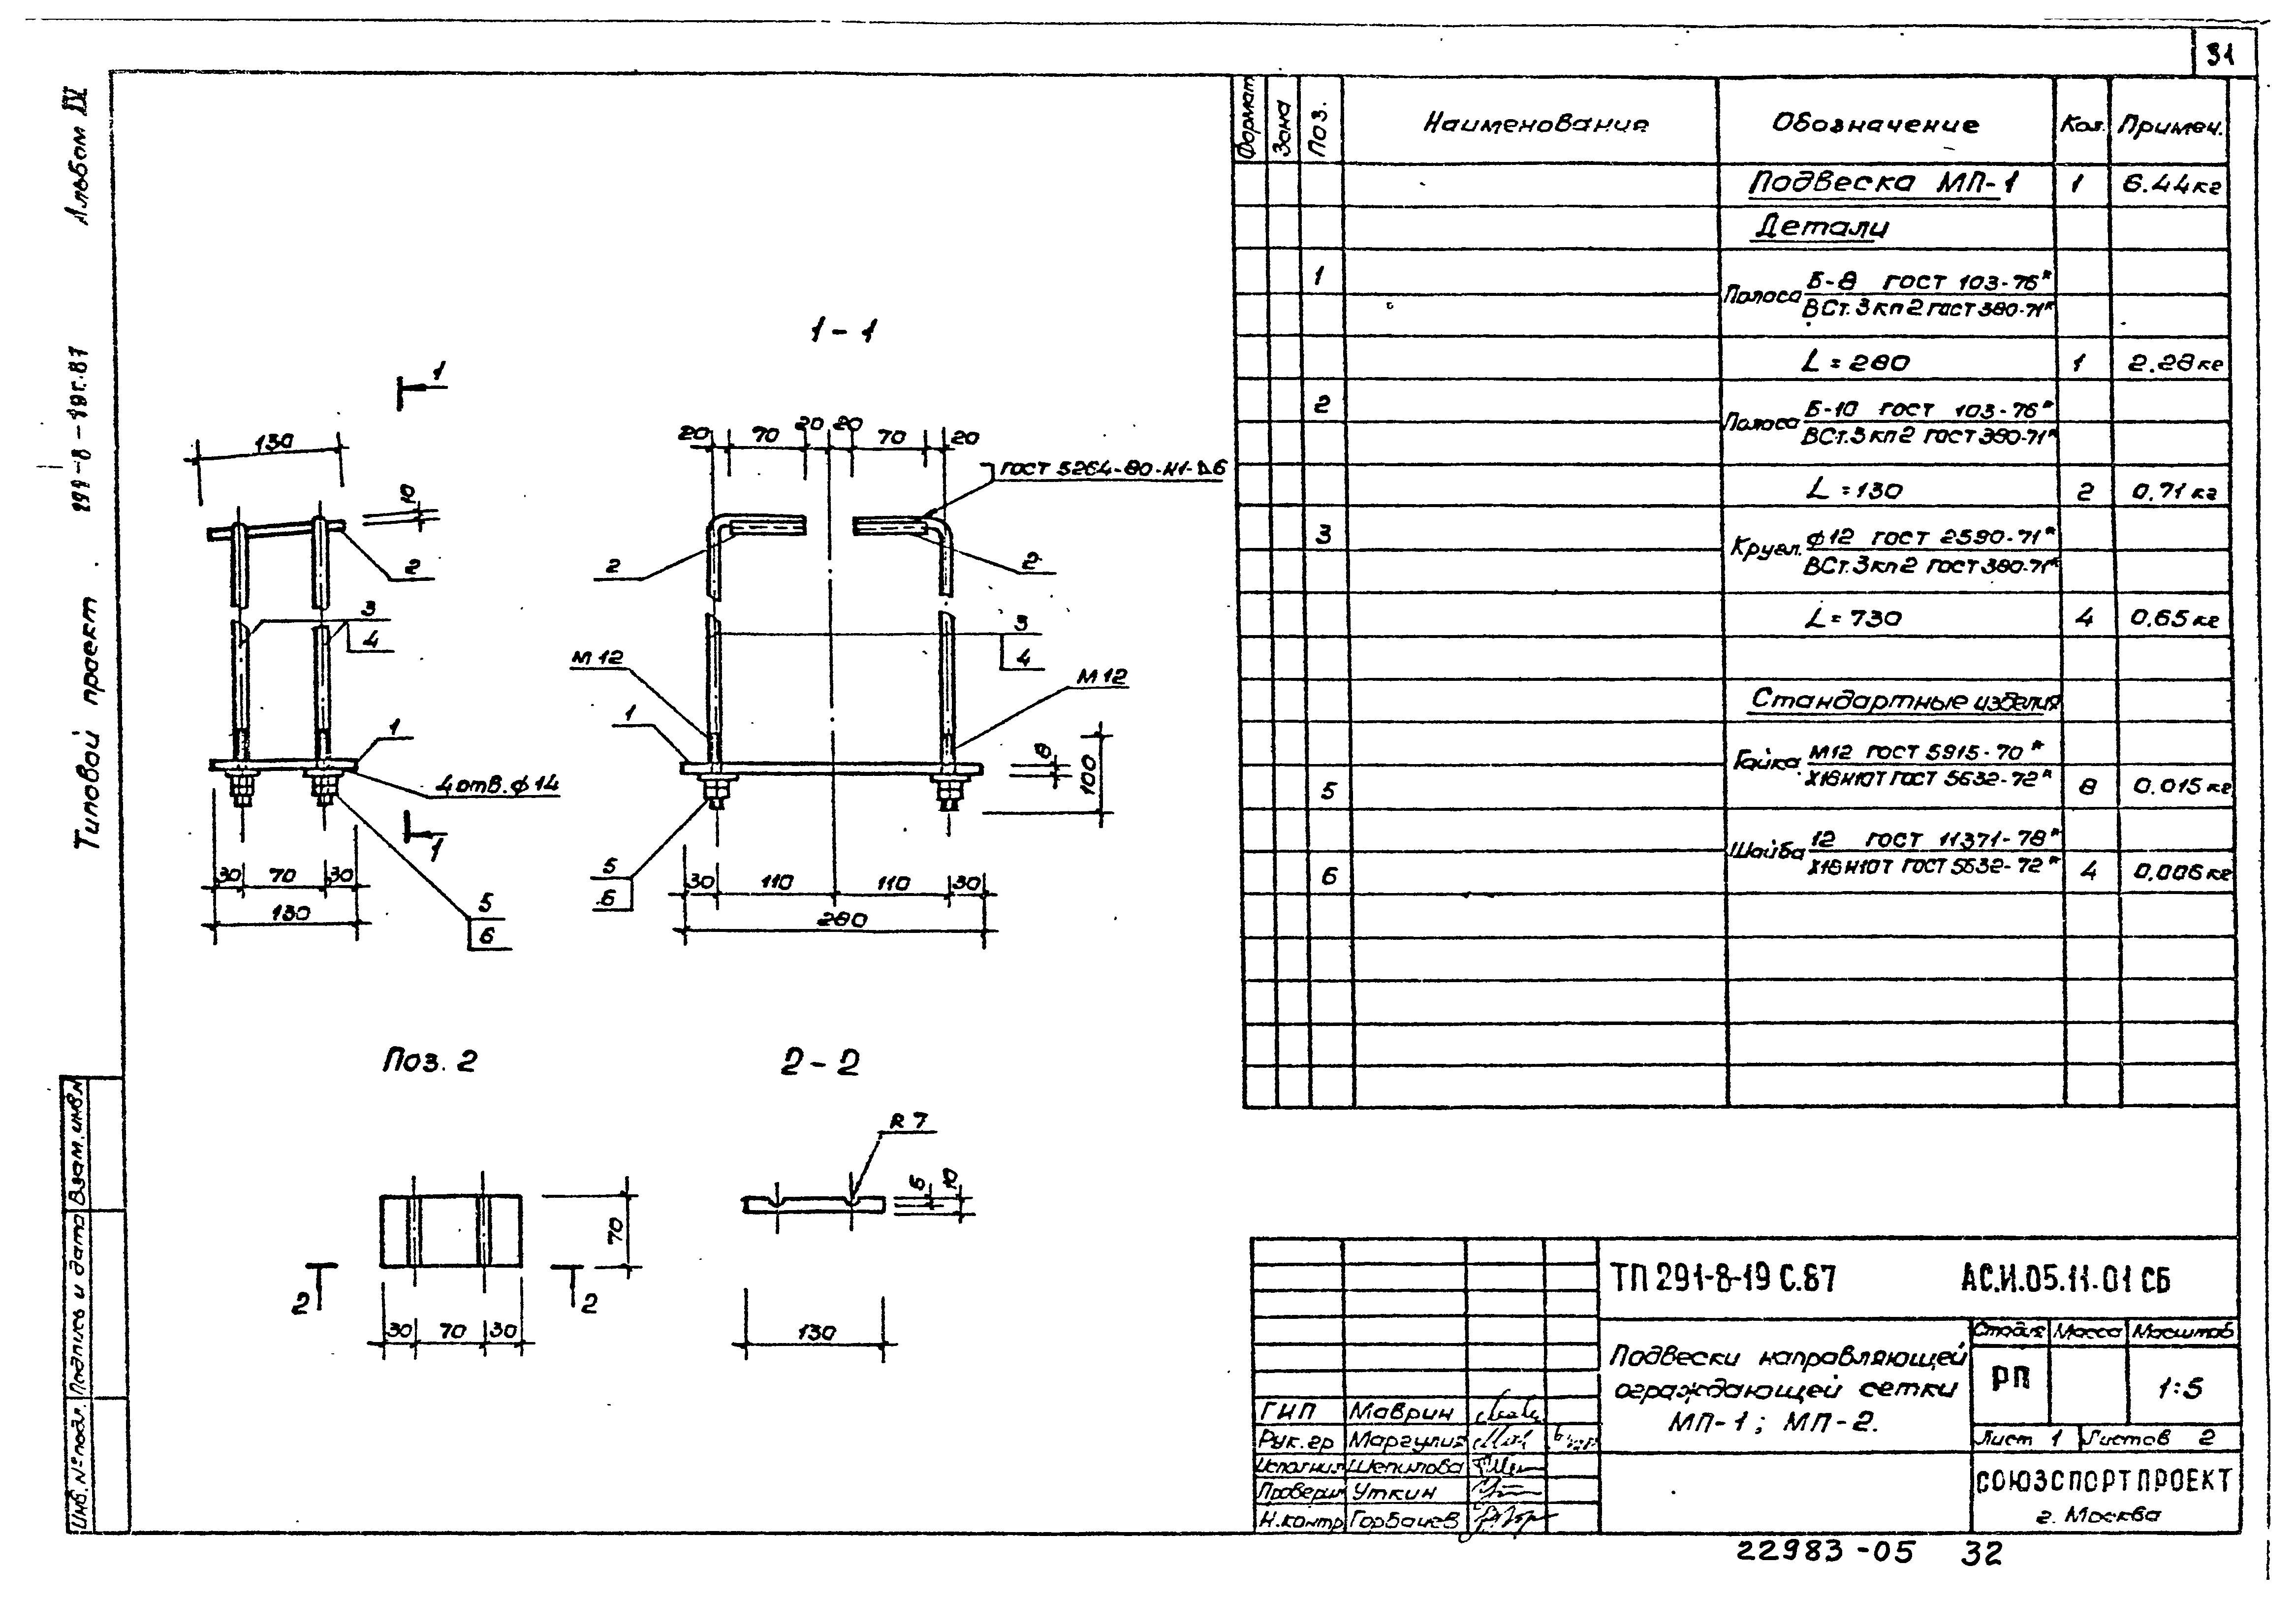 31
Альбом IV
Типовой проект 291-8-19г.87
Инв. № подл.
Подпись и дата
Взам. инв. №
1-1
1
130
10
2
3
4
1
4 отв. ф 14
1
30 70 30
130
5
6
20 70 20 20 70 20
ГОСТ 5264-80-Н1-Δ6
2
2
3
4
М 12
М 12
1
8
100
5
6
30 110 110 30
280
Поз. 2
2-2
R 7
6 10
70
2 2
30 70 30
130
Формат Зона Поз. Наименование Обозначение Кол. Примеч.
Подвеска МП-1 1 6.44 кг
Детали
1 Полоса Б-8 ГОСТ 103-76*
ВСт.3кп2 ГОСТ 380-71*
L = 280 1 2.28 кг
2 Полоса Б-10 ГОСТ 103-76*
ВСт.3кп2 ГОСТ 380-71*
L = 130 2 0,71 кг
3 Кругл. ф12 ГОСТ 2590-71*
ВСт.3кп2 ГОСТ 380-71*
L = 730 4 0,65 кг
Стандартные изделия
Гайка М12 ГОСТ 5915-70*
5 Х18Н10Т ГОСТ 5632-72* 8 0.015 кг
Шайба 12 ГОСТ 11371-78*
6 Х18Н10Т ГОСТ 5632-72* 4 0,006 кг
ТП 291-8-19 С.87 АС.И.05.11.01 СБ
Подвески направляющей
ограждающей сетки
МП-1; МП-2.
Стадия Масса Масштаб
РП 1:5
Лист 1 Листов 2
СОЮЗСПОРТПРОЕКТ
г. Москва
ГИП Маврин
Рук. гр Маргулис
Исполнил Шепилова
Проверил Уткин
Н. контр Горбачев
22983-05 32